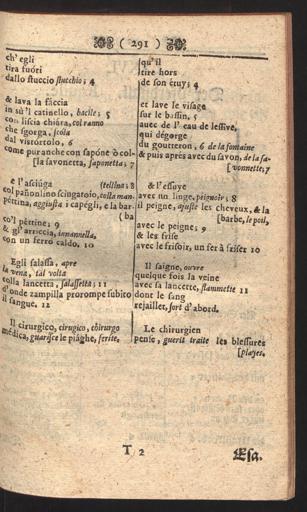 ( 291 )
ch' egli
tira fuóri
dallo stuccio stucchio; 4
& lava la fáccia
in sù'l catinello, bacile; 5
con liscia chiára, col ranno
che sgorga, scola
dal vistórtolo, 6
come pur anche con sapóne ò col-
[la savonetta, saponetta; 7
e l'asciúga
col pañolino sciugatoio,
péttina, aggiusta i capégli, e la bar-
(ba
co'l péttine; 9
& gl' arriccia,
con un ferro caldo. 10
Egli salassa, apre
la vena, tal volta
colla lancetta, 11
d'onde zampilla prorompe subito
il sangue. 12
Il cirurgico, cirugico, chirurgo
médica, guarisce le piághe, ferite.
qu'il
tire hors
de son étuy; 4
et lave le visage
sur le bassin, 5
avec de l'eau de lessive,
qui dégorge
du goutteron, 6 de la fontaine
& puis après avec du savon, de la sa-
[vonnette; 7
& l'essuye
avec un linge, peignoir; 8
il peigne, ajuste les cheveux, & la
[barbe, le poil,
avec le peigne; 9
& les frise
avec le frisoir, un fer à friser 10
Il saigne, ouvre
quelque fois la veine
avec sa lancette, flammette 11
dont le sang
rejaillet, sort d'abord.
Le chirurgien
pense, guerit traite les blessures
[playes.
T 2
Esa.